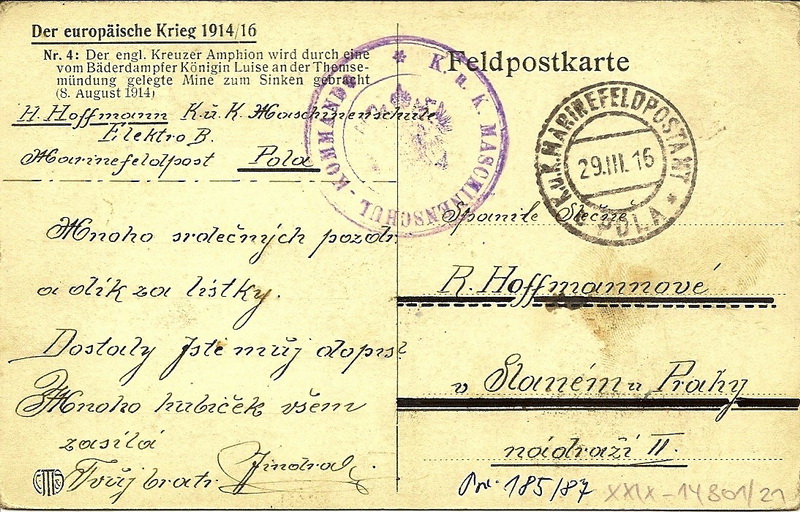 Der europäische Krieg 1914/16
Nr. 4: Der engl. Kreuzer Amphion wird durch eine
vom Bäderdampfer Königin Luise an der Themse-
mündung gelegte Mine zum Sinken gebracht
(8. August 1914)
H. Hoffmann K. u. K. Maschinenschule
Elektro B.
Marinefeldpost Pola
Mnoho srdečných pozdr.
a dík za lístky.
Dostaly jste můj dopis?
Mnoho hubiček všem
zasílá
Tvůj bratr Jindra
Feldpostkarte
K. u. K. MASCHINENSCHUL-KOMMANDO
K.u.K. MARINEFELDPOSTAMT
29.III.16
POLA
Spanilé Slečně
R. Hoffmannové
v Slaném u Prahy
nádraží II.
185/87
XXIX-14801/21